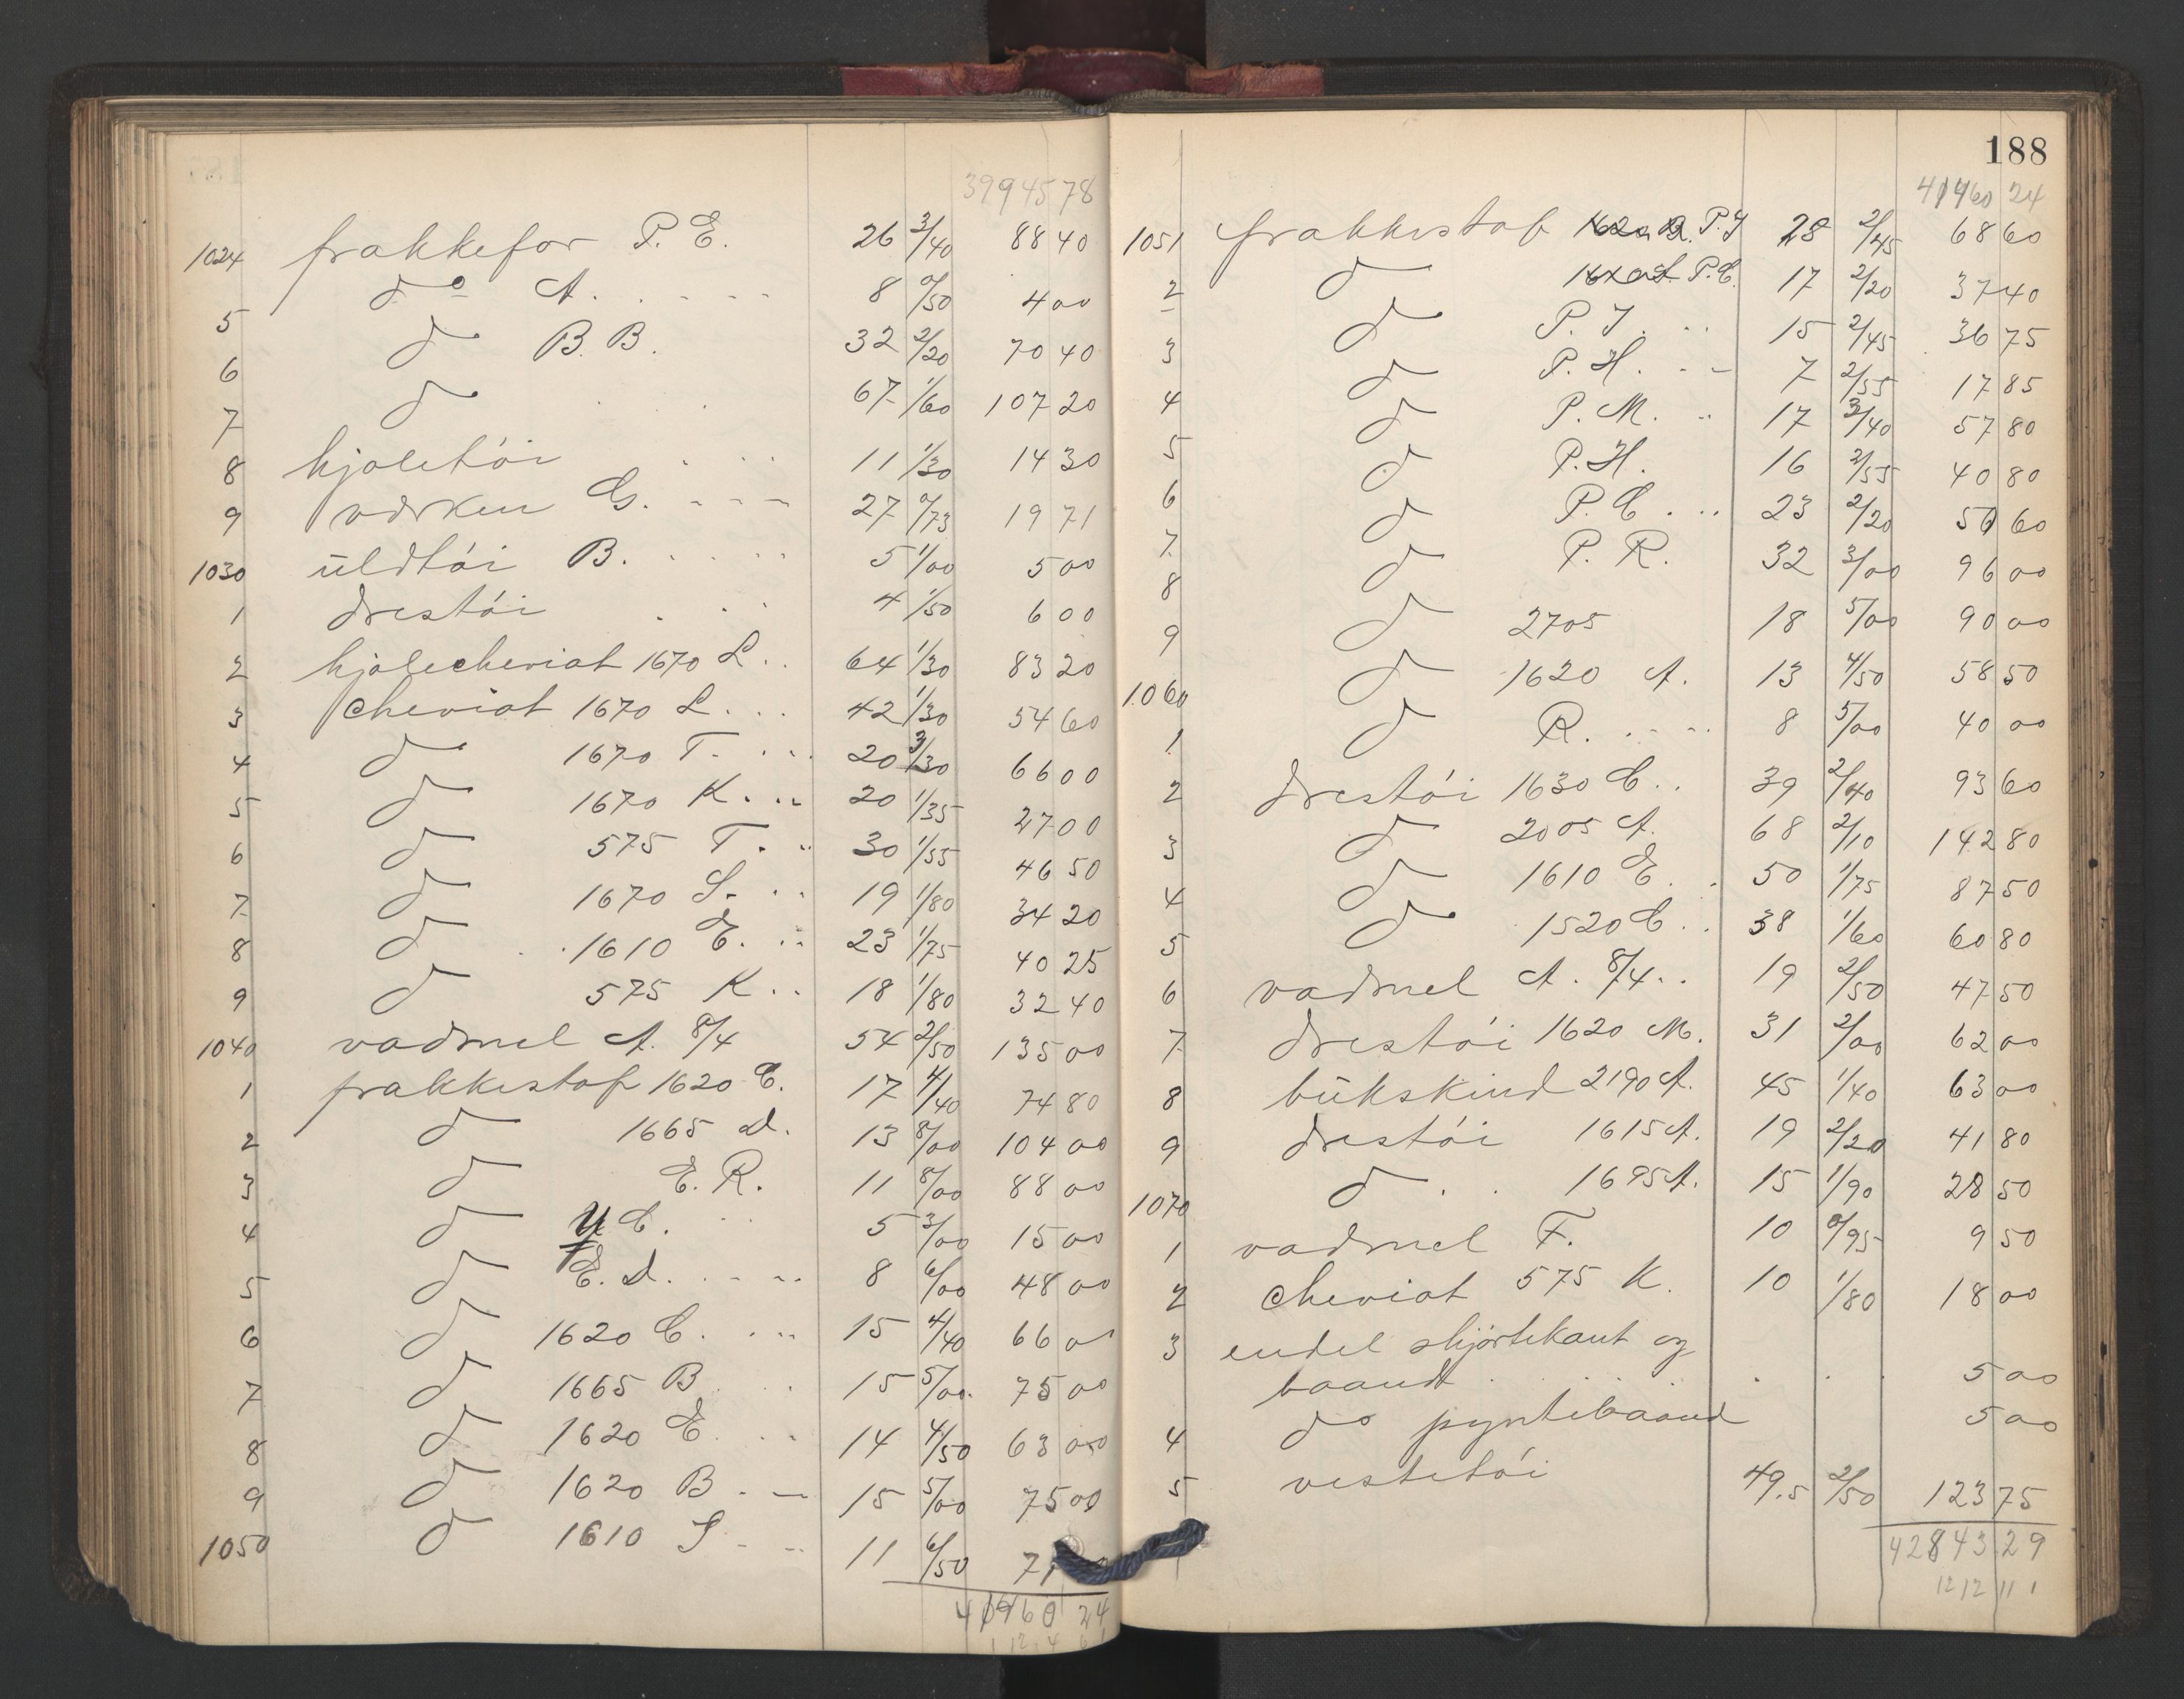 39945 78
1024 frakkefor P. E. 26 3/40 88 40
5 do A. 8 0/50 4 00
6 d B. B. 32 2/20 70 40
7 d 67 1/60 107 20
8 kjoletöi 11 1/30 14 30
9 værken G. 27 0/73 19 71
1030 üldtöi B. 5 1/00 5 00
1 drestöi 4 1/50 6 00
2 kjolecheviat 1670 L. 64 1/30 83 20
3 Cheviat 1670 L. 42 1/30 54 60
4 d 1670 T. 20 3/30 66 00
5 d 1670 K. 20 1/35 27 00
6 d 575 T. 30 1/55 46 50
7 d 1670 S. 19 1/80 34 20
8 d 1610 E. 23 1/75 40 25
9 d 575 K. 18 1/80 32 40
1040 vadmel A. 8/4 54 2/50 135 00
1 frakkestof 1620 C. 17 4/40 74 80
2 d 1665 D. 13 8/00 104 00
3 d E. R. 11 8/00 88 00
4 d Y C. 5 3/00 15 00
5 d E. D. 8 6/00 48 00
6 d 1620 C. 15 4/40 66 00
7 d 1665 B 15 5/00 75 00
8 d 1620 E 14 4/50 63 00
9 d 1620 B 15 5/00 75 00
1050 d 1610 S 11 6/50 71
41960 24
188
41960 24
1051 frakkestof P. J 28 2/45 68 60
2 d P. C. 17 2/20 37 40
3 d P. J. 15 2/45 36 75
4 d P. H. 7 2/55 17 85
5 d P. M. 17 3/40 57 80
6 d P. H. 16 2/55 40 80
7 d P. C. 23 2/20 50 60
8 d P. R. 32 3/00 96 00
9 d 2705 18 5/00 90 00
1060 d 1620 A. 13 4/50 58 50
1 d R. 8 5/00 40 00
2 drestöi 1630 C. 39 2/40 93 60
3 d 2005 A. 68 2/10 142 80
4 d 1610 E. 50 1/75 87 50
5 d 1520 C. 38 1/60 60 80
6 vadmel A. 8/4 19 2/50 47 50
7 drestöi 1620 M. 31 2/00 62 00
8 bükskind 2190 A. 45 1/40 63 00
9 drestöi 1615 A. 19 2/20 41 80
1070 d 1695 A. 15 1/90 28 50
1 vadmel F. 10 0/95 9 50
2 Cheviat 575 K. 10 1/80 18 00
3 endel skjørtekant og
baand 5 00
4 do pyntebaand 5 00
5 vestetöi 49.5 2/50 123 75
42843 29
12 12 11 1